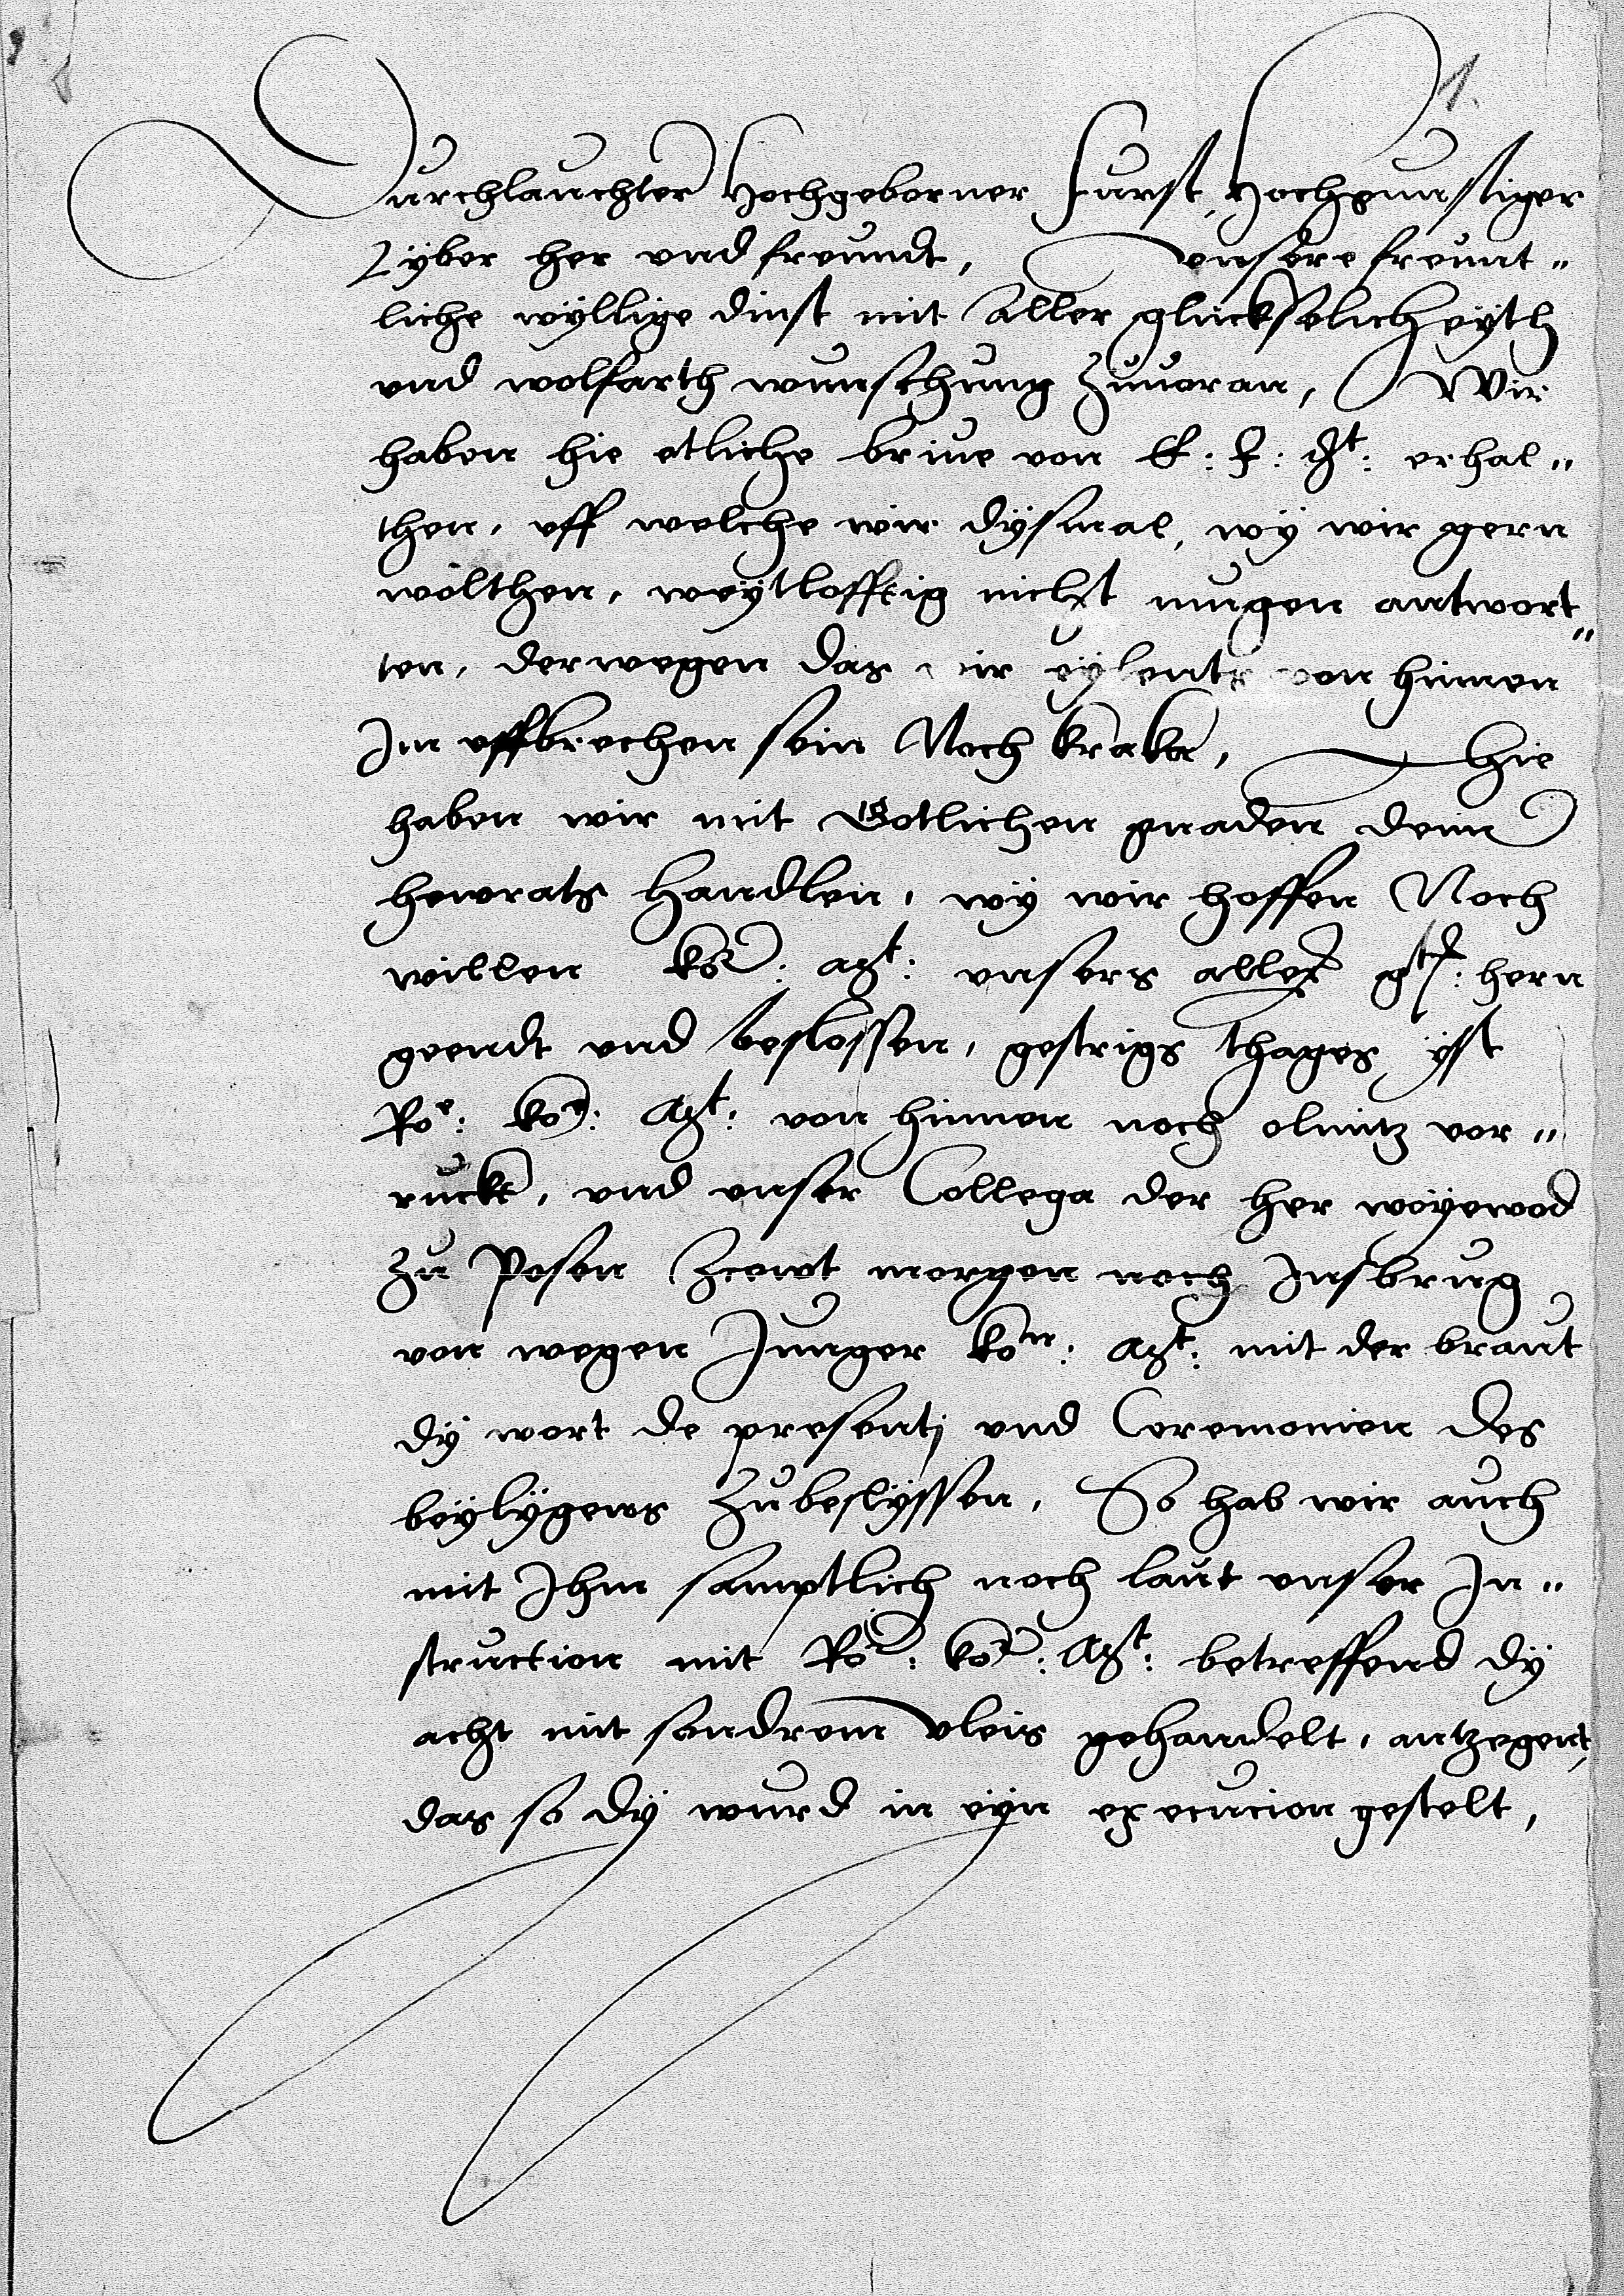 1.
Durchlauchter Hochgeborner furst, Hochgunstiger
Lyber her vnd freundt, vnsere freunt„
liche wyllige dinst mit Aller gluckselicheyth
vnd wolfarth wunschung zuuoran, Wir
haben hie etliche briue von E: F: gt: erhal„
then, vff welche wir dysmal, wy wir gern
wolthen, weytlofftig nicht mugen antwort„
ten, derwegen das wir eylents von hinnen
Im vffbrechen sein Noch kraka, Hie
haben wir mit Gotlichen gnaden denn
hewrats handlen, wy wir hoffen Noch
willen kor: Mt: vnsers aller gts: hern
geendt vnd beslossen, gestrigs thages yst
Roe: koe: Mt: von hinnen noch olmitz vor„
ruckt, vnd vnser Collega der her woyewod
zu Posen Zcewt morgen noch Insbrug
von wegen Junger kor: Mt: mit der braut
dy wort de presentj vnd Ceremonien des
beylygens zubeslyssen, So hab wir auch
mit Ihm samptlich noch laut vnser In„
struction mit Ror: kor: Mt: betreffend dy
acht mit sondrem vleis gehandelt, antzegent,
das so dy wurd in eyn execucion gestelt,